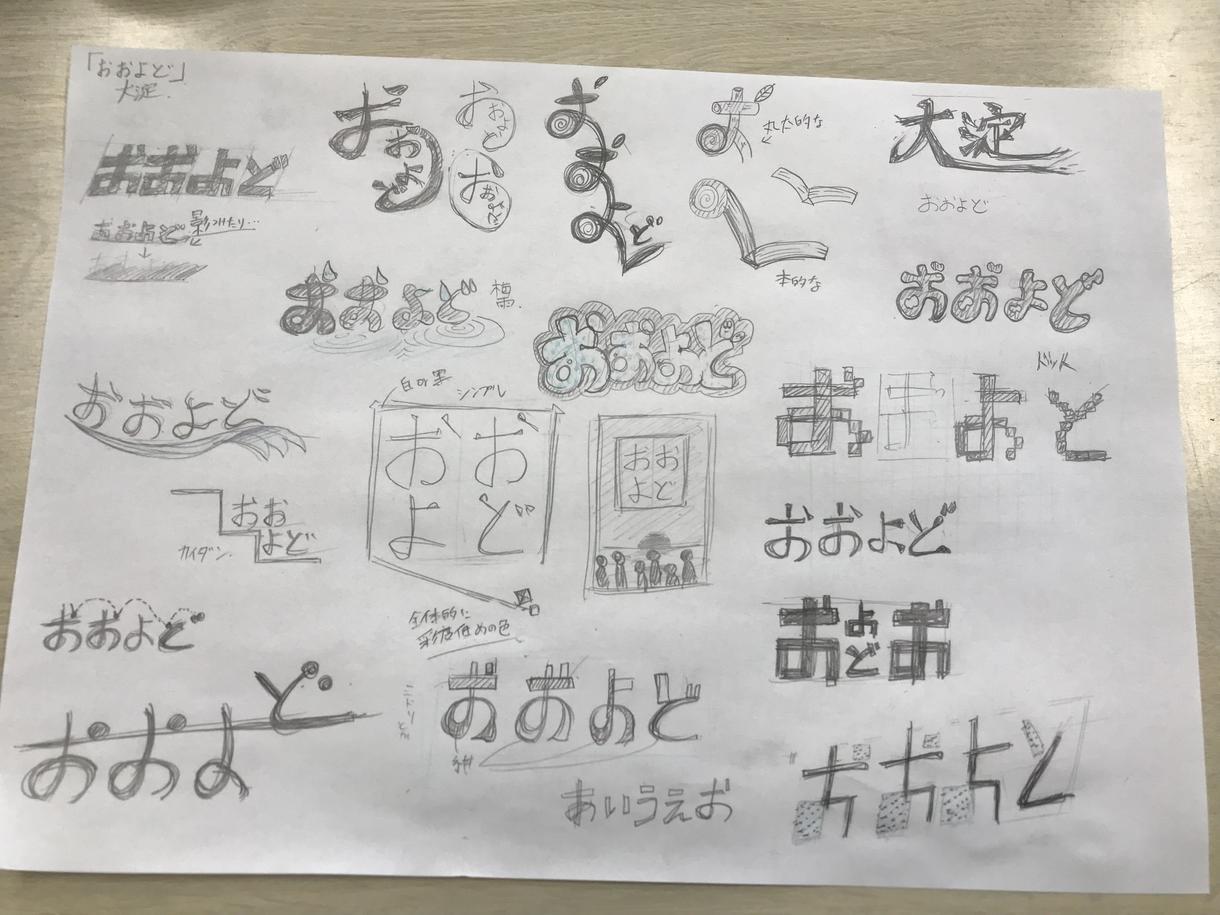 「おおよど」
大淀
おおよど
おおよど
影つけたり…
おおよど
おおよど
おおよど
おおよど
お
丸太的な
本的な
大淀
おおよど
おおよど
梅雨
おおよど
おおよど
おおよど
白か黒
シンプル
おお
よど
おお
よど
ドット
おおよど
おおよど
おお
よど
カイダン
おおよど
全体的に
彩度低めの色
おおよど
おおよど
おおよど
あいうえお
おおよど